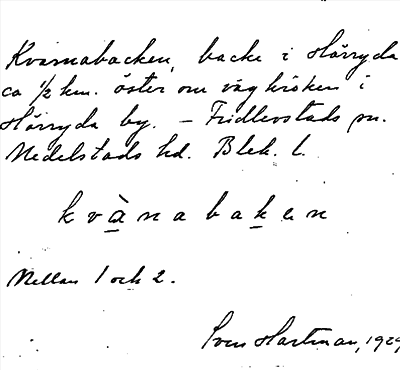 Kvarnabacken, backe i Hårryda
ca 1/2 km. öster om vägkröken i
Hårryda by. – Fridlevstads sn.
Medelstads hd. Blek. l.
kvànabaken
Mellan 1 och 2.
Sven Hartman, 1929